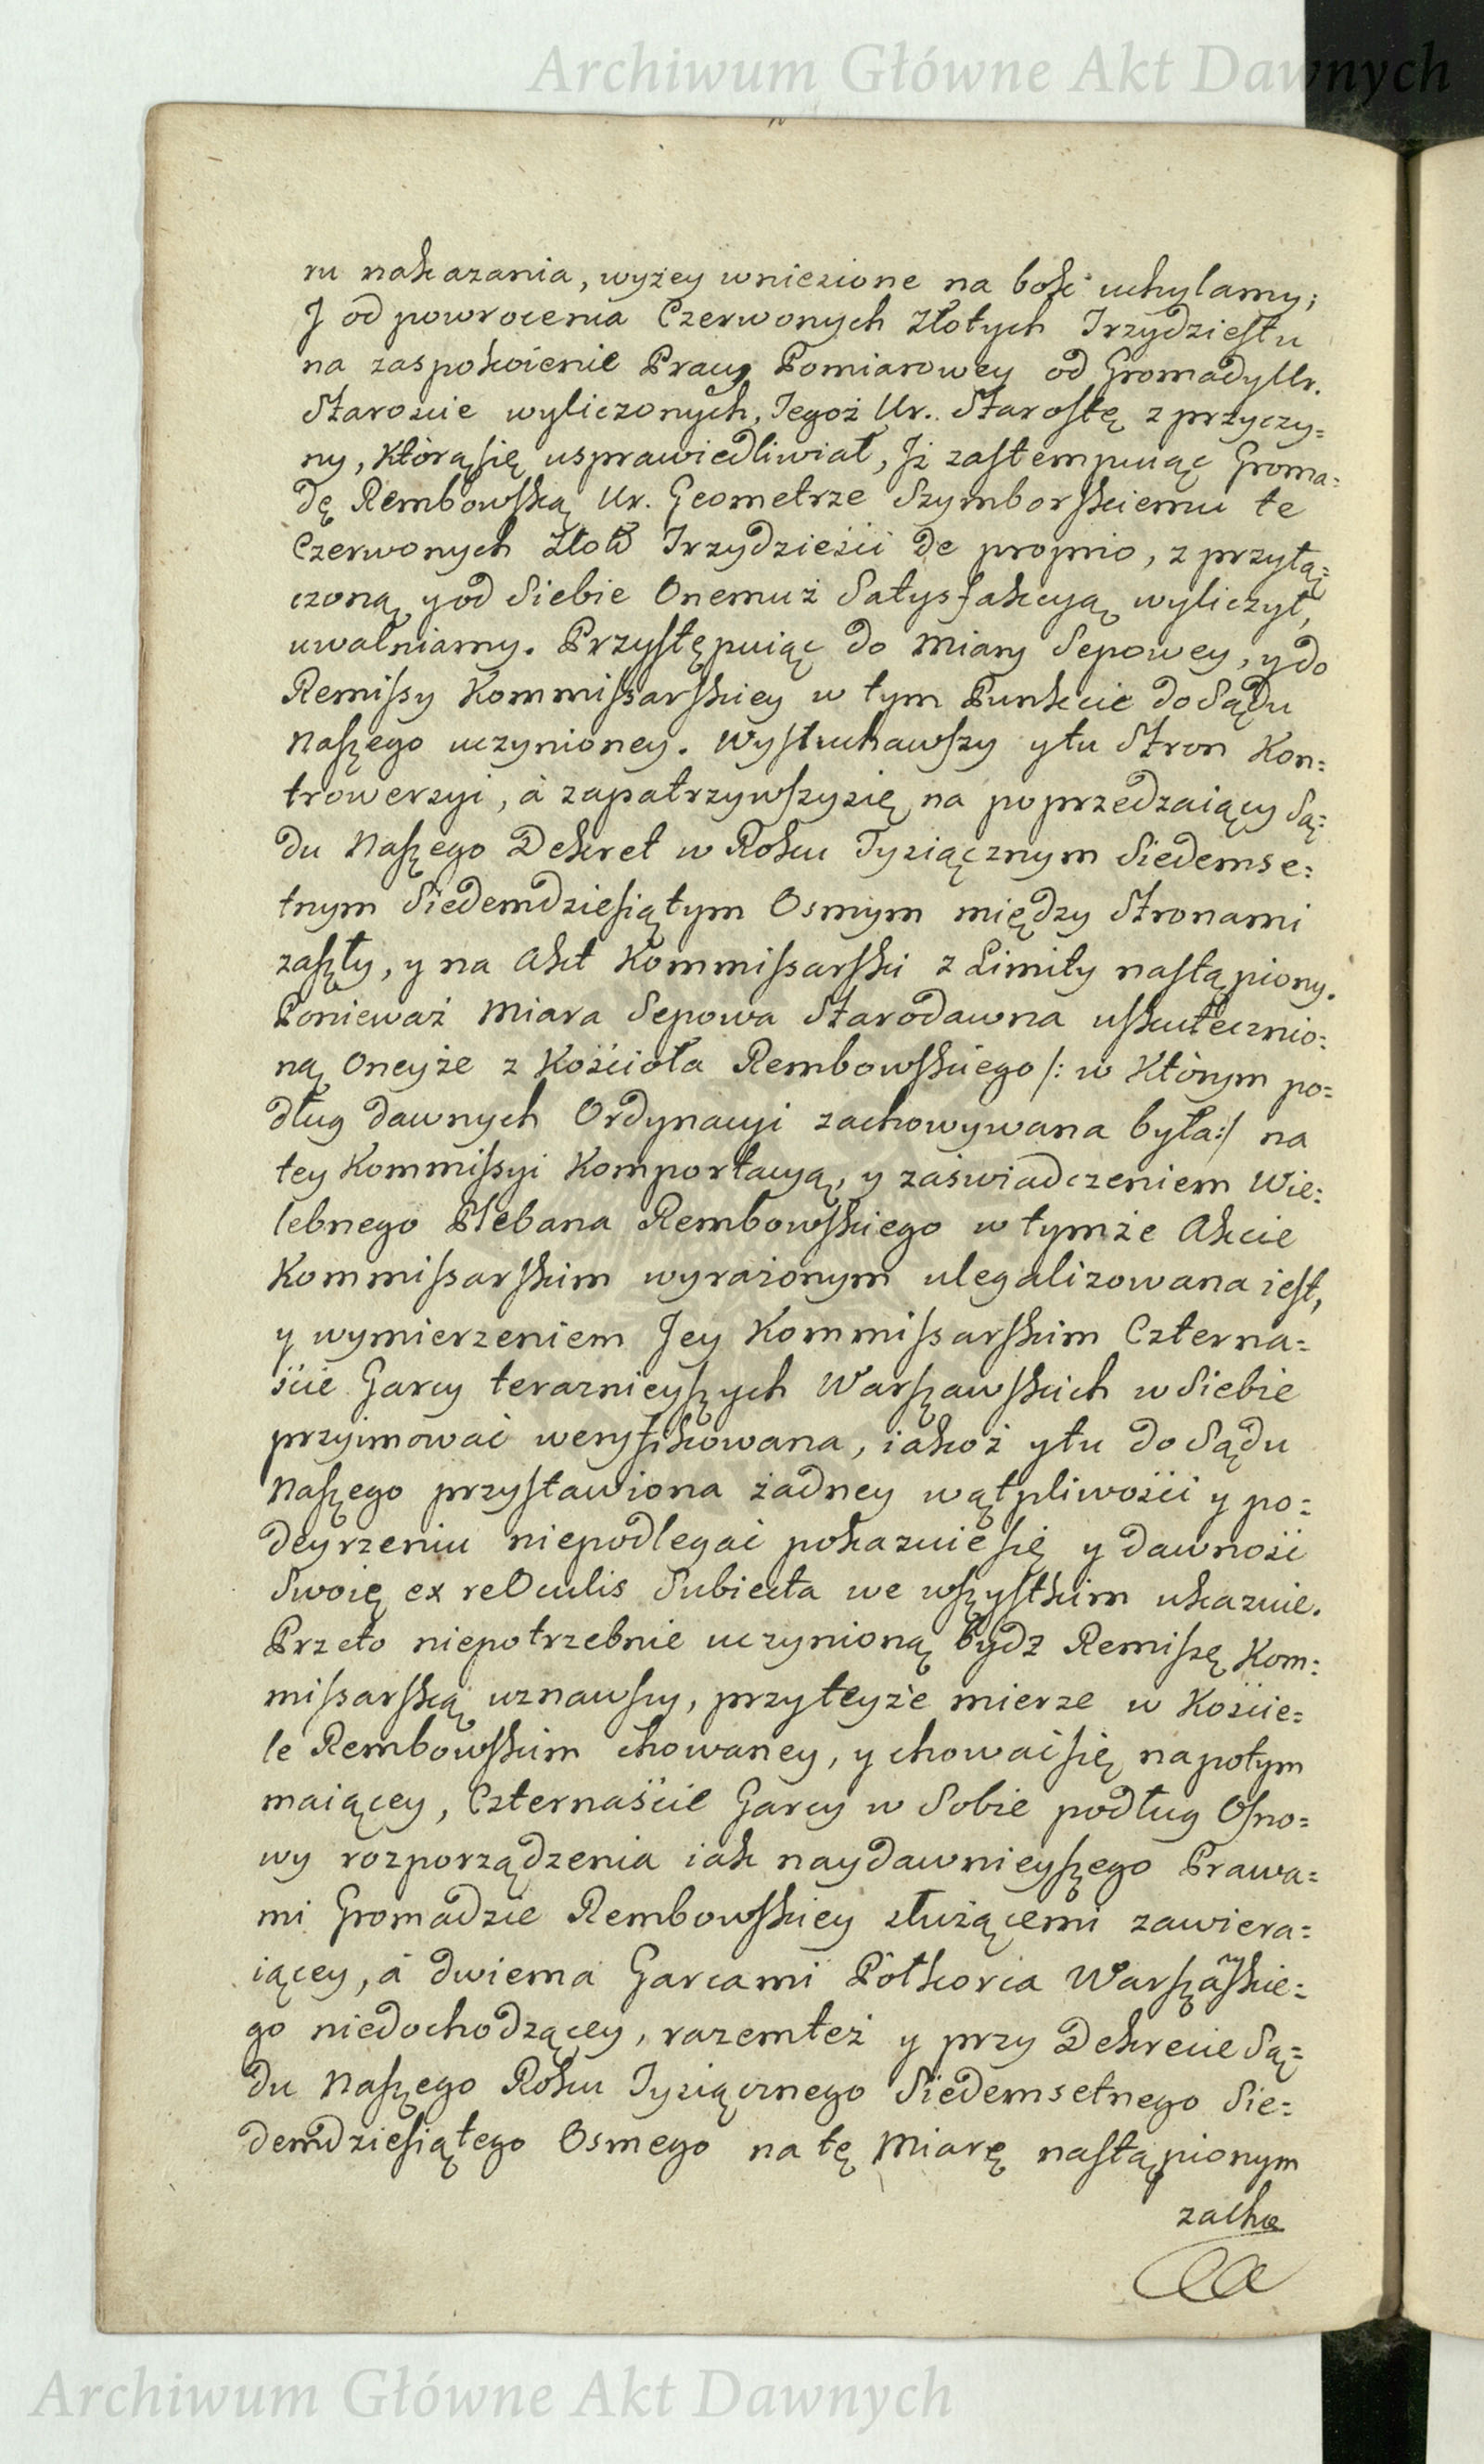 Archiwum Główne Akt Dawnych
ru nakazania, wyżey wniesione na bok uchylamy;
J od powrocenia Czerwonych Złotych Trzydziestu
na zaspokoienie Pracy Pomiarowey od Gromady Ur.
Staroscie wyliczonych, Tegoż Ur. Starostę z przyczy=
ny, którą się usprawiedliwiał, Jż zastempuiąc Groma=
dę Rembowską Ur. Geometrze Szymborskiemu te
Czerwonych Złotd Trzydzieści de proprio, z przyłą=
czoną y od Siebie Onemuż Satysfakcyą wyliczył,
uwalniamy. Przystępuiąc do Miary Sepowey, y do
Remissy Kommissarskiey w tym Punkcie do Sądu
Naszego uczynioney. Wysłuchawszy y tu Stron Kon=
trowersyi, à zapatrzywszysię na poprzedzaiący Są=
du Naszego Dekret w Roku Tysiącznym Siedemse=
tnym Siedemdziesiątym Osmym między Stronami
zaszły, y na Akt Kommissarski z Limity nastąpiony.
Ponieważ Miara Sepowa Starodawna uskutecznio=
ną Oneyże z Kościoła Rembowskiego /: w Którym po=
dług dawnych Ordynacyi zachowywana była :/ na
tey Kommissyi Komportacyą, y zaświadczeniem Wie=
lebnego Plebana Rembowskiego w tymże Akcie
Kommissarskim wyrażonym ulegalizowana iest,
y wymierzeniem Jey Kommissarskim Czterna=
ście Garcy teraznieyszych Warszawskich w Siebie
przyimować weryfikowana, iakoż y tu do Sądu
Naszego przystawiona żadney wątpliwości y po=
deyrzeniu niepodlegać pokazuie się y dawność
Swoię ex re Oculis Subiecta we wszystkim ukazuie.
Przeto niepotrzebnie uczynioną bydz Remissę Kom=
missarską uznawszy, przy teyże mierze w Koście=
le Rembowskim chowaney, y chować się napotym
maiącey, Czternaście Garcy w Sobie podług Osno=
wy rozporządzenia iak naydawnieyszego Prawa=
mi Gromadzie Rembowskiey służącemi zawiera=
iącey, à dwiema Garcami Półkorca Warszawskie=
go niedochodzącey, razemteż y przy Dekrecie Są=
du Naszego Roku Tysiącznego Siedemsetnego Sie=
demdziesiątego Osmego na tę Miarę nastąpionym
zacho
Archiwum Główne Akt Dawnych